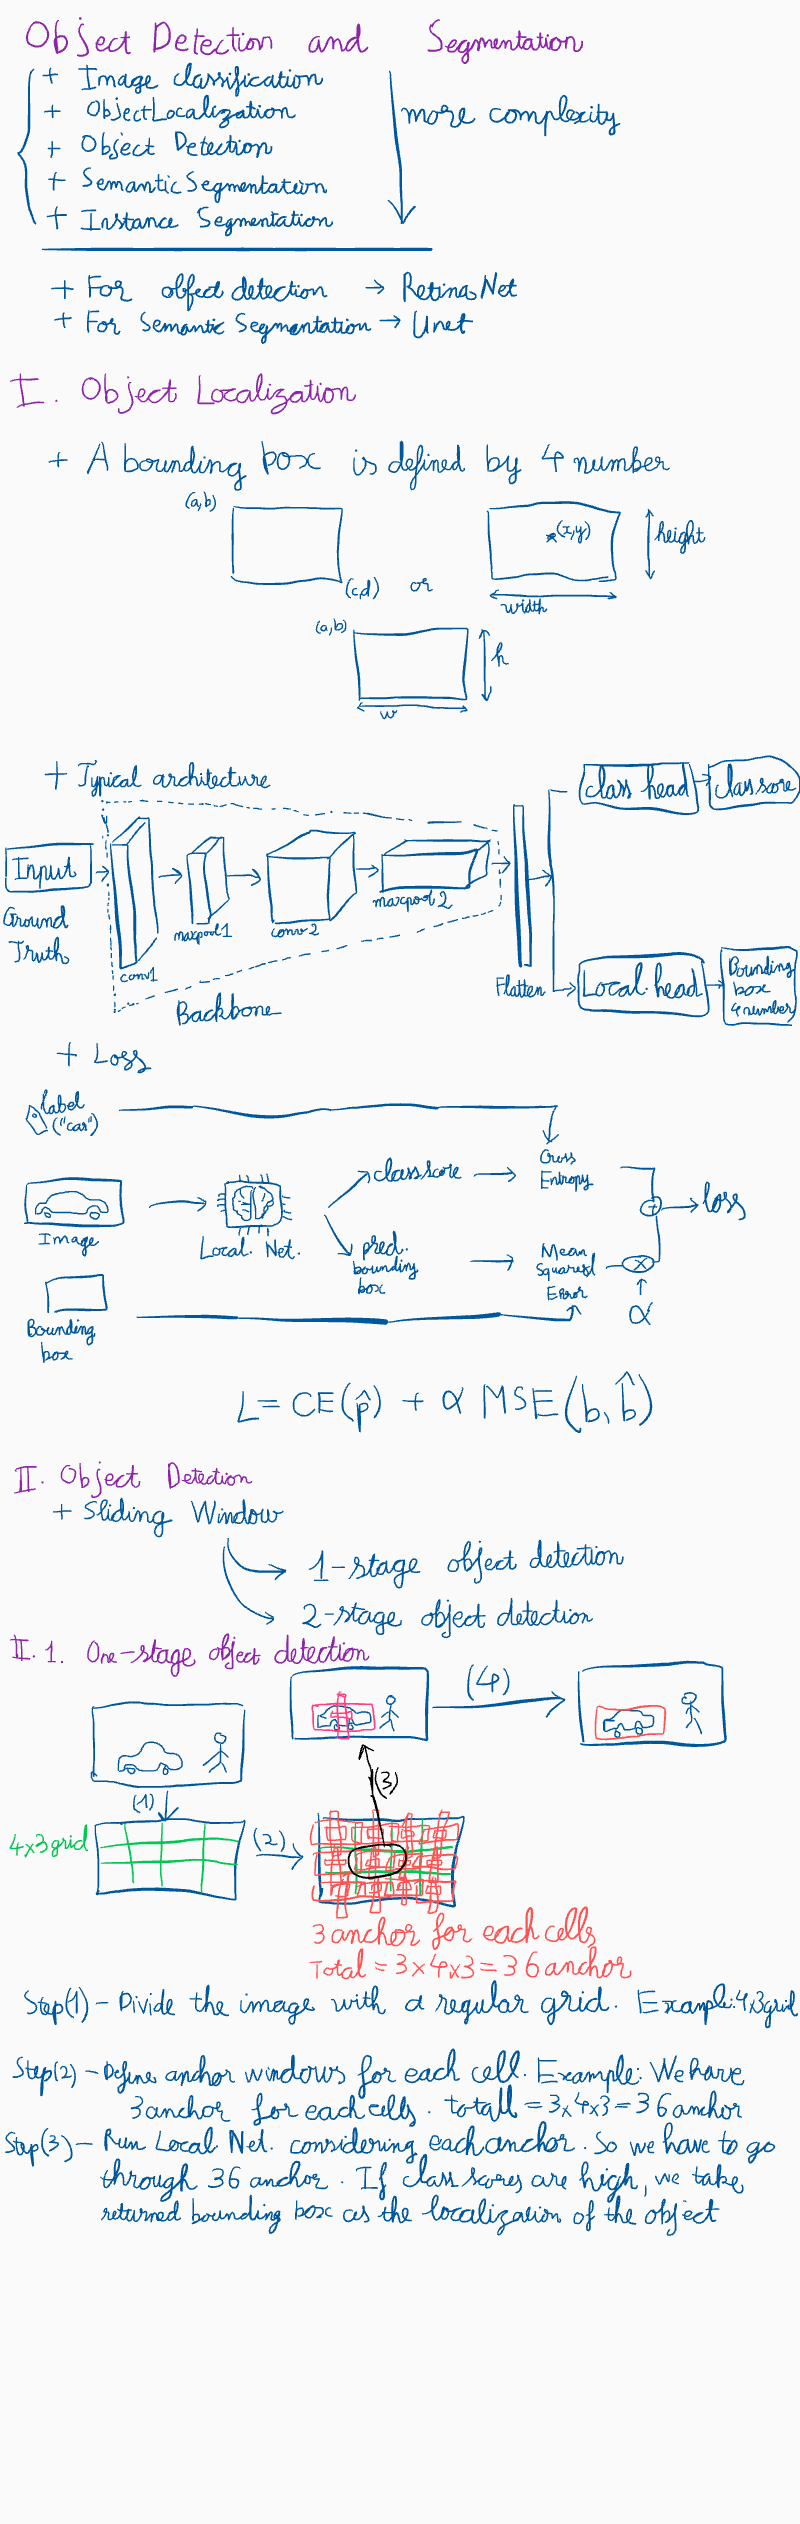 Object Detection and Segmentation
+ Image classification
+ Object Localization
+ Object Detection
+ Semantic Segmentation
+ Instance Segmentation
more complexity
+ For object detection → RetinaNet
+ For Semantic Segmentation → Unet
I. Object Localization
+ A bounding box is defined by 4 number
(a,b)
(c,d)
or
(x,y)
height
width
(a,b)
h
w
+ Typical architecture
Input
Ground
Truth
conv1
maxpool1
conv2
maxpool2
Backbone
Flatten
class head
class score
Local. head
Bounding
box
4 number
+ Loss
label
("car")
Image
Bounding
box
Local. Net.
class score
pred.
bounding
box
Cross
Entropy
Mean
Squared
Error
+
×
α
loss
L = CE(p̂) + α MSE(b, b̂)
II. Object Detection
+ Sliding Window
1-stage object detection
2-stage object detection
II. 1. One-stage object detection
(1)
4x3 grid
(2)
(3)
(4)
3 anchor for each cells
Total = 3 x 4 x 3 = 36 anchor
Step(1) - Divide the image with a regular grid. Example: 4x3 grid
Step(2) - Define anchor windows for each cell. Example: We have
3 anchor for each cells. totall = 3x4x3 = 36 anchor
Step(3) - Run Local Net. considering each anchor. So we have to go
through 36 anchor. If class scores are high, we take
returned bounding box as the localization of the object